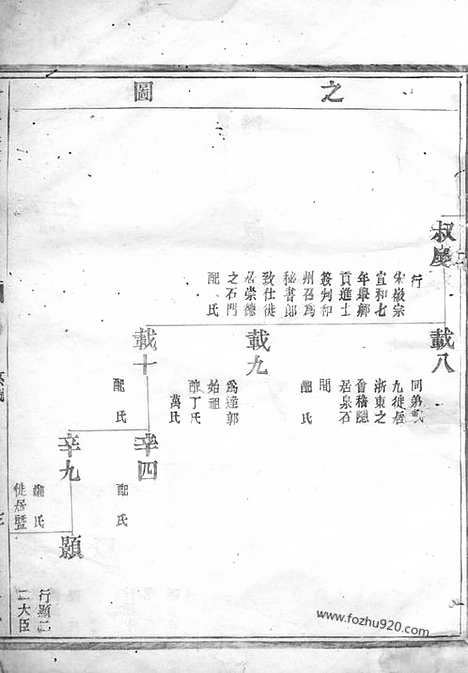 圖 之
叔慶
行
宋徽宗
宣和七
年舉鄉
貢進士
簽判
州召爲
秘書郎
致仕徙
居崇德
之石門
配 氏
載八
同弟載
九徙居
浙東之
會稽隱
居泉石
間
載九
爲達郭
始祖
醮丁氏
萬氏
載十
配 氏
辛四
配 氏
辛九
氏
徙居暨
顯
行顯二
二大臣
www.fozhu920.com